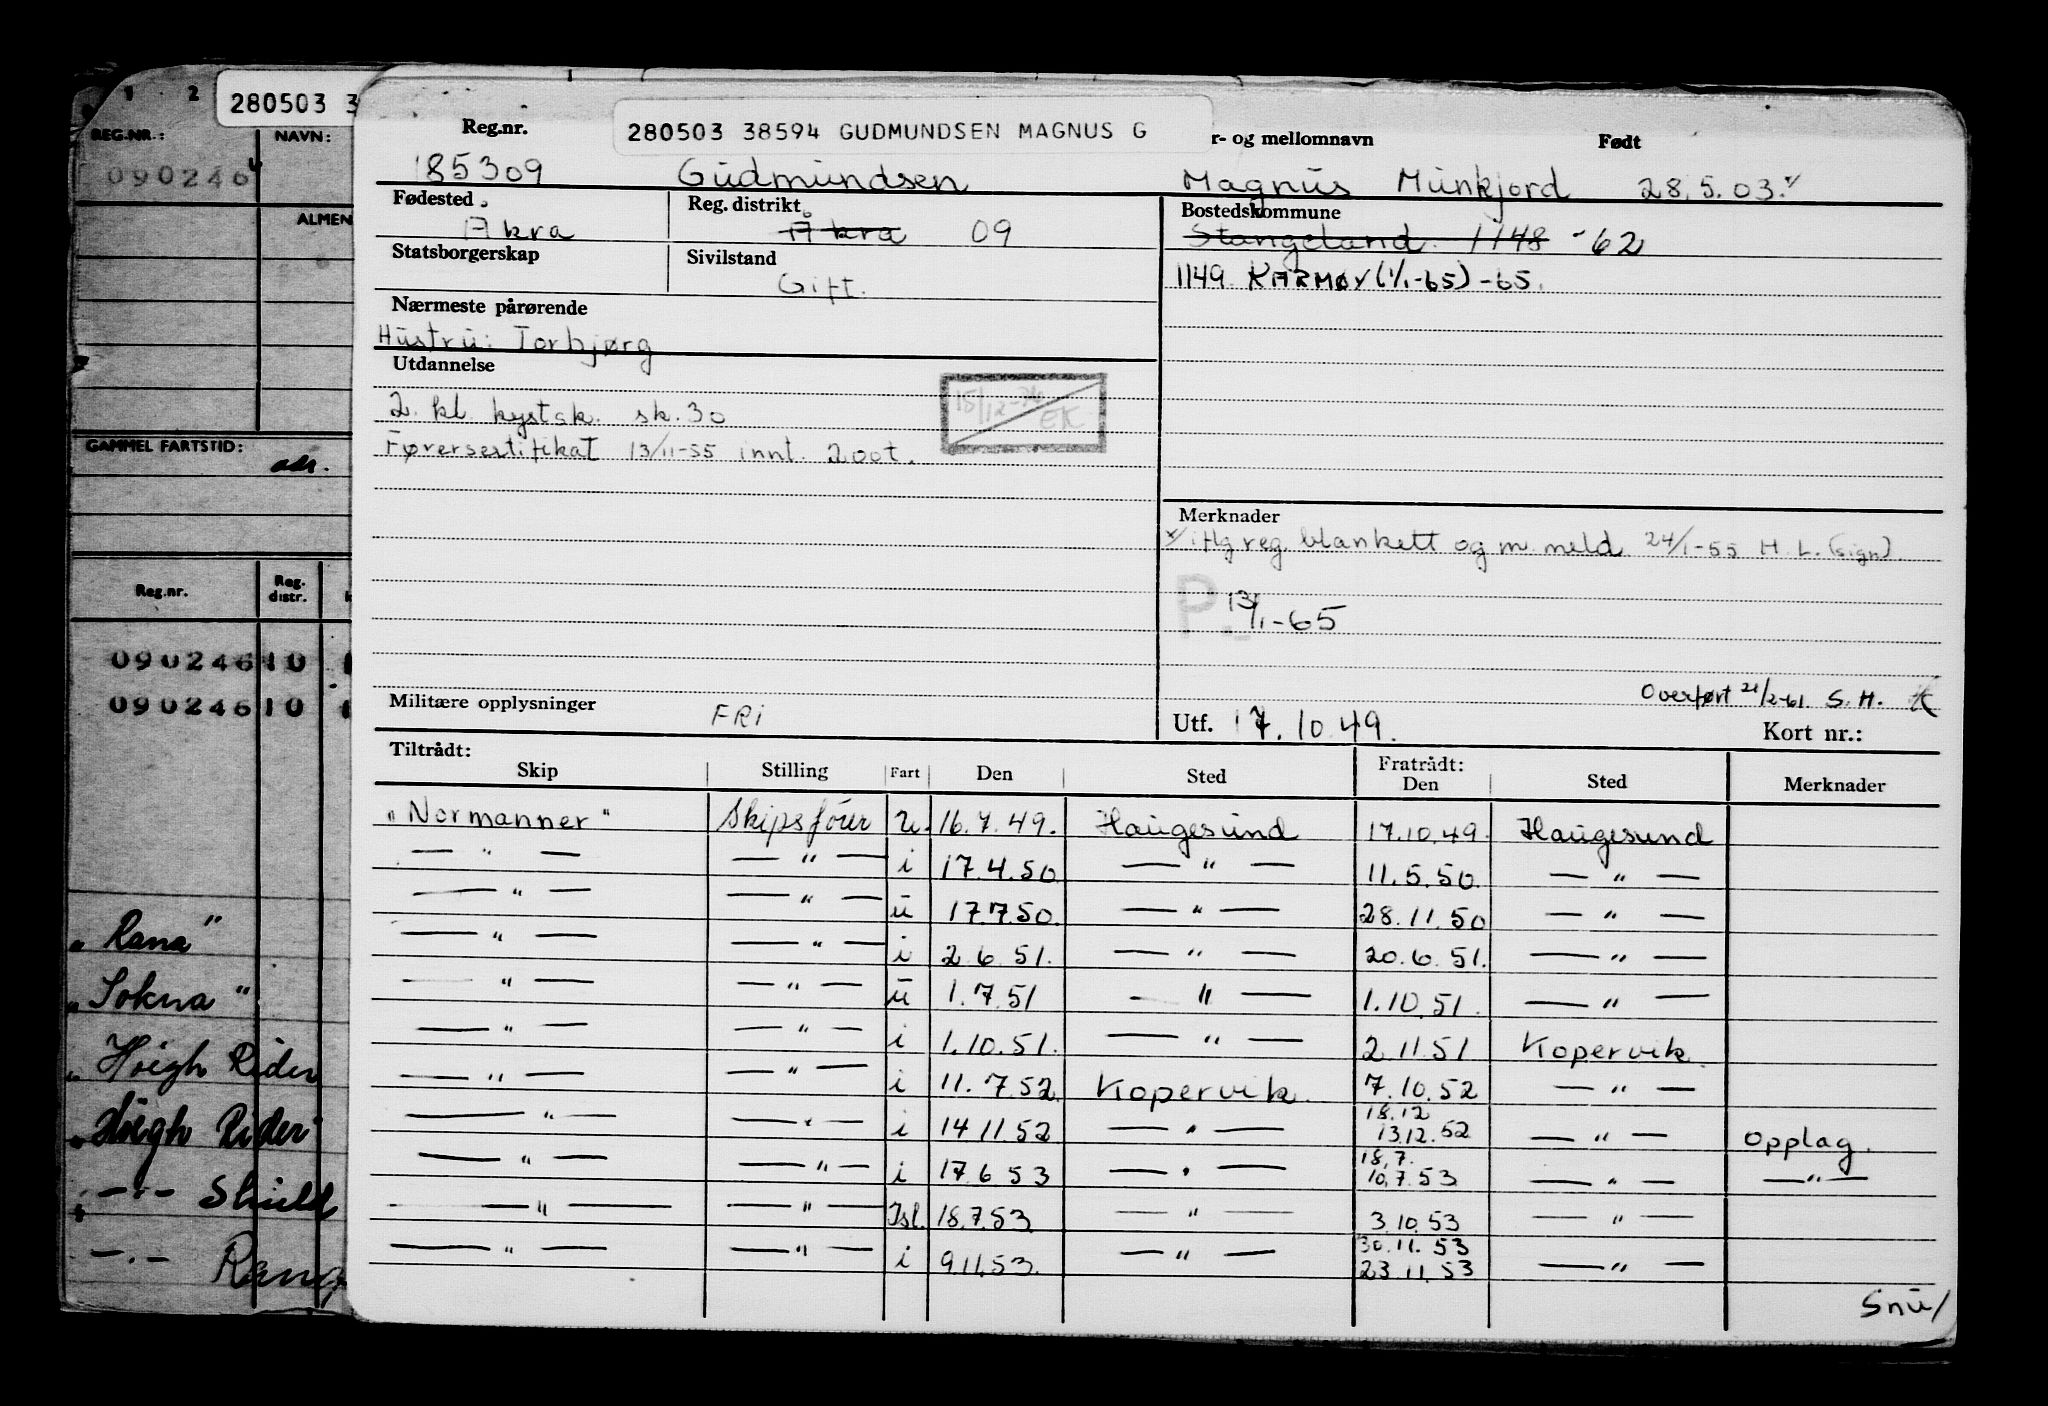 1 2
280503 3
REG.NR.: NAVN:
090246
ALMEN
GAMMEL FARTSTID:
adr.
Reg.nr. Reg. distr.
090246 10 1
090246 10 1
„ Rana "
„ Sokna "
„ Höegh Rider
„ Höegh Rider"
— " — Shield
— " — Rang
280503 38594 GUDMUNDSEN MAGNUS G
Reg.nr. r- og mellomnavn Født
185309 Gudmundsen Magnus Munkjord 28.5.03. x/
Fødested Reg. distrikt Bostedskommune
Åkra Åkra 09 Stangeland 1148 -62
Statsborgerskap Sivilstand
Gift. 1149. KARMØY (1/1-65) -65.
Nærmeste pårørende
Hustru: Torbjørg
Utdannelse
2. kl. kystsk. sk. 30
15/12-76 EK
Førersertifikat 13/11-55 innt. 200t.
Merknader
x/ iflg reg. blankett og m. meld. 24/1-55 H. L. (sign)
P. 13/1-65
Overført 21/2-61. S. H.
Militære opplysninger FRI Utf. 17.10.49. Kort nr.:
Tiltrådt: Fratrådt:
Skip Stilling Fart Den Sted Den Sted Merknader
„Normanner" Skipsfører u. 16.7.49. Haugesund 17.10.49. Haugesund
— " — — " — i 17.4.50. — " — 11.5.50. — " —
— " — — " — u 17.7.50. — " — 28.11.50 — " —
— " — — " — i 2.6.51. — " — 20.6.51. — " —
— " — — " — u 1.7.51 — " — 1.10.51. — " —
— " — — " — i 1.10.51. — " — 2.11.51 Kopervik.
— " — — " — i 11.7.52 Kopervik. 7.10.52 — " —
18.12
— " — — " — i 14.11.52 — " — 13.12.52 — " — Opplag.
18.7.
— " — — " — i 17.6.53 — " — 10.7.53 — " — — " —
— " — — " — Isl. 18.7.53 — " — 3.10.53 — " —
30.11.53
— " — — " — i 9.11.53. — " — 23.11.53 — " —
Snu/